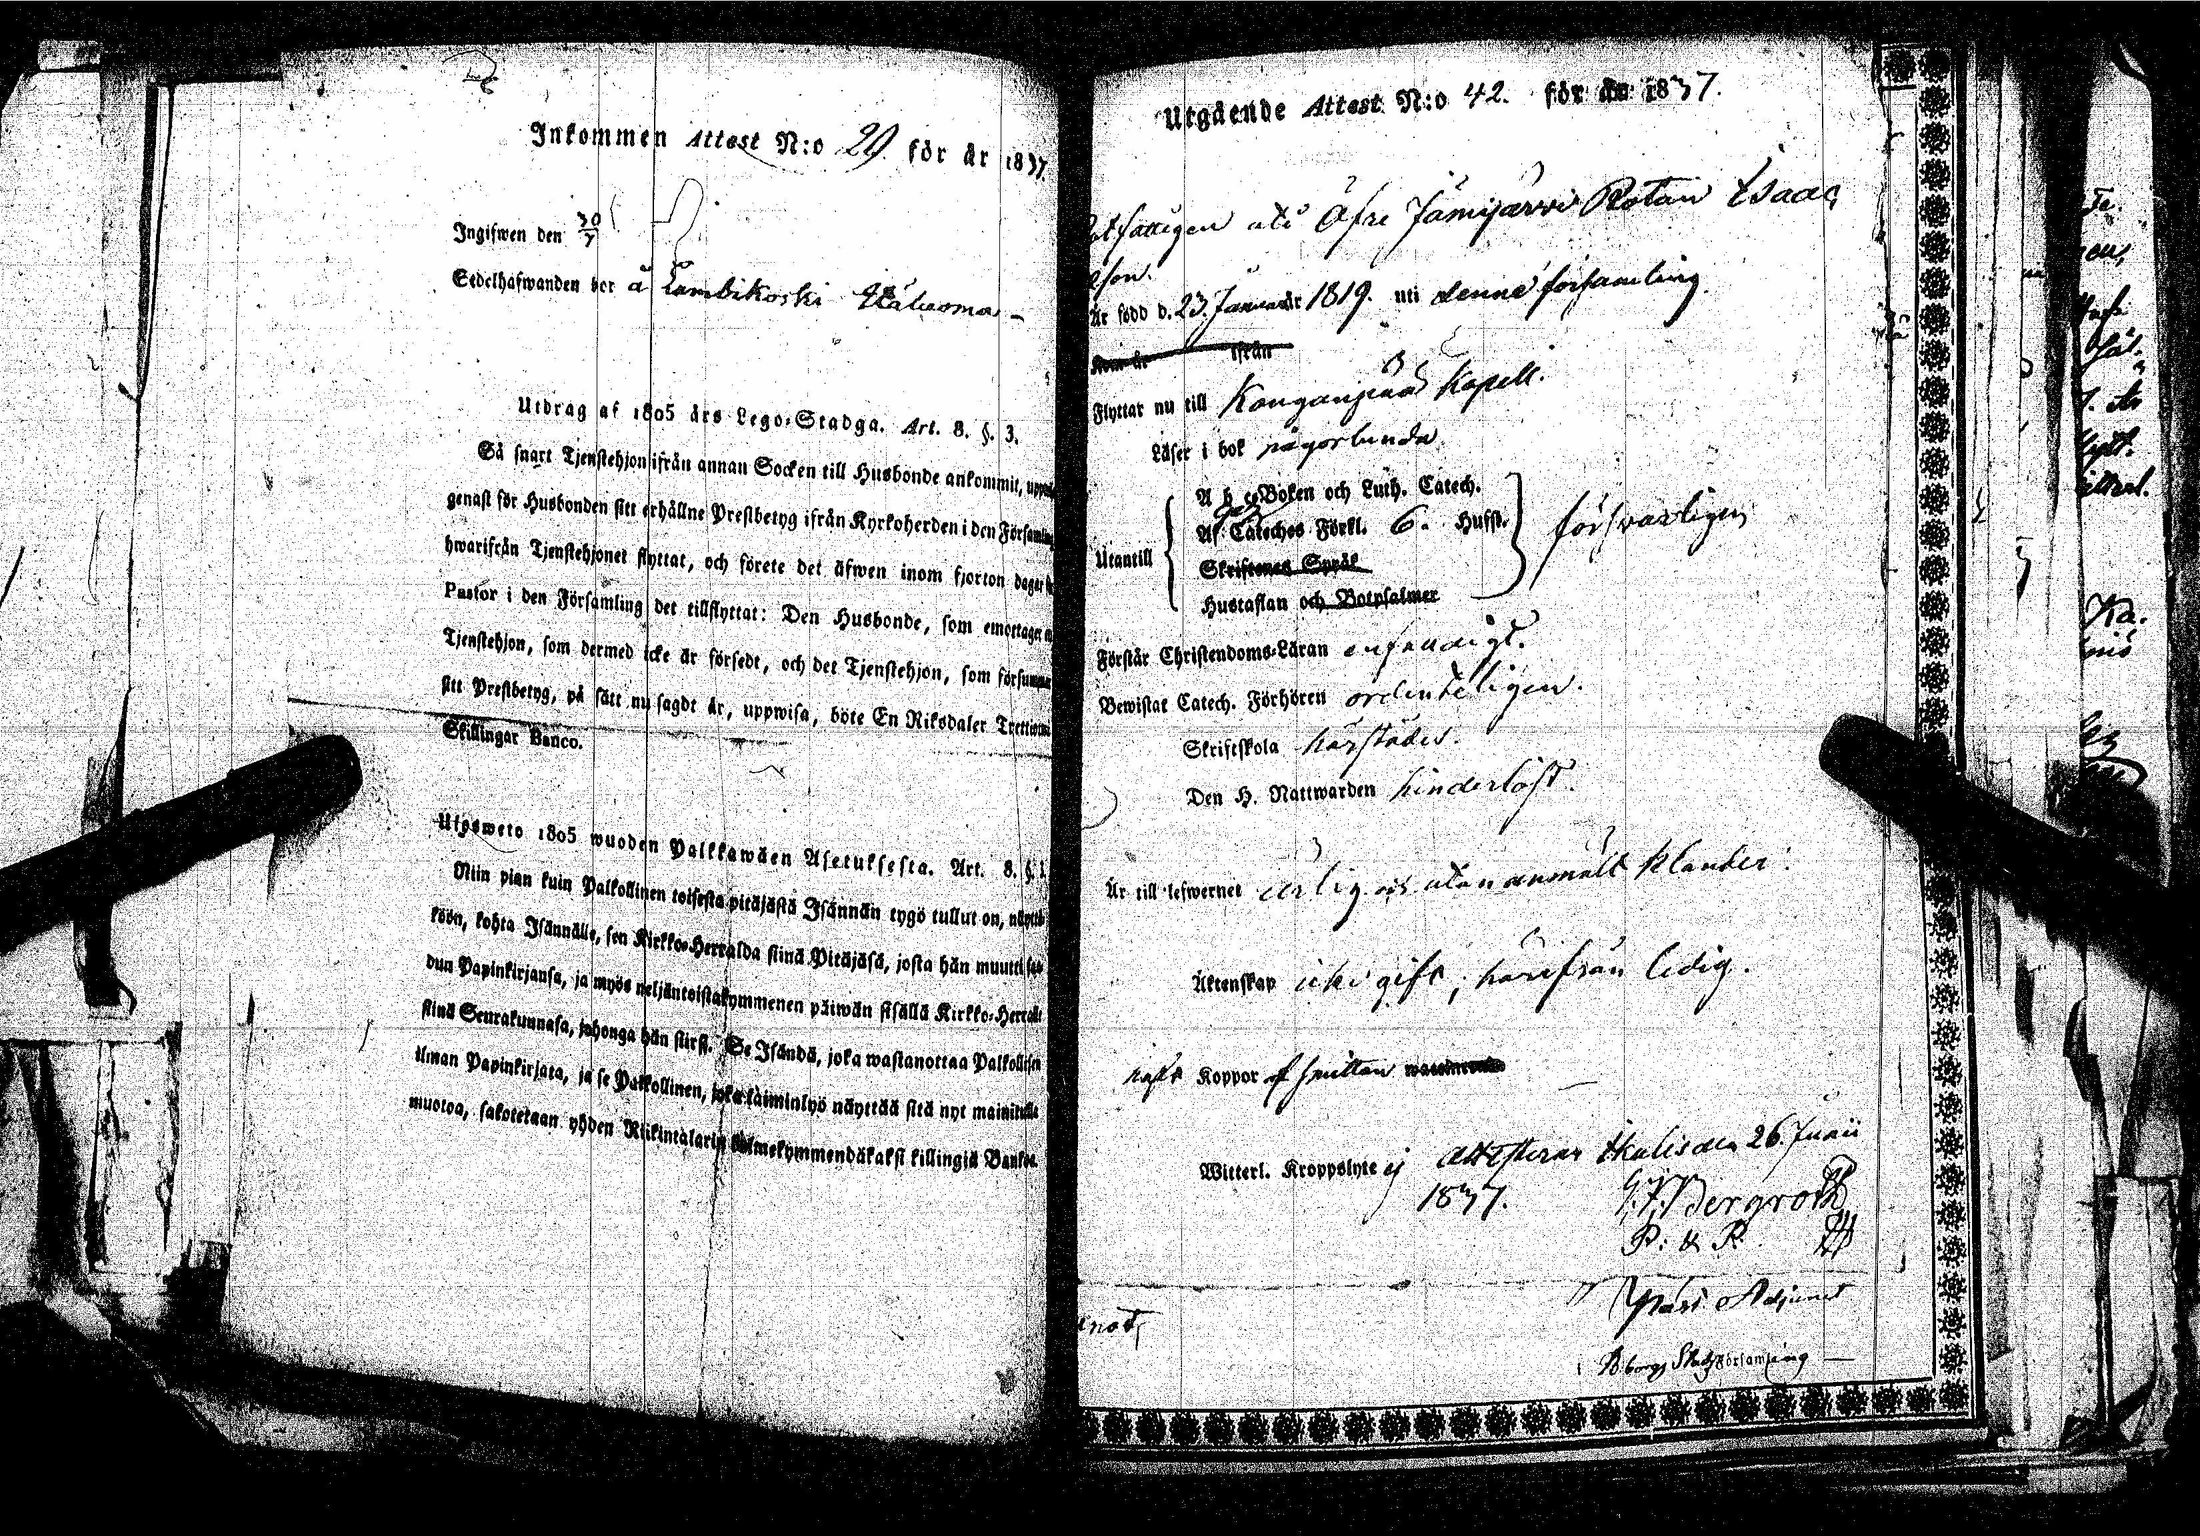 Inkommen Attest N:o 29. för år 1837.
Ingifwen den 30/7
Sedelhafwanden bor å Lambikoski
Utdrag af 1805 års Lego-Stadga. Art. 8. §. 3.
Så snart Tjenstehjon ifrån annan Socken till Husbonde ankommit,
genast för Husbonden sitt erhållne Prestbetyg ifrån Kyrkoherden i den Församling
hwarifrån Tjenstehjonet flyttat, och förete det äfwen inom fjorton dagar
Pastor i den Församling det tillflyttat: Den Husbonde, som emottager
Tjenstehjon, som dermed icke är försedt, och det Tjenstehjon, som försummar
sitt Prestbetyg, på sätt nu sagdt är, uppwisa, böte En Riksdaler
Skillingar Banco.
Ulosweto 1805 wuoden Palkkawäen Asetuksesta. Art. 8. §.
Niin pian kuin Palkollinen toisesta pitäjästä Isännän tygö tullut on,
köön, kohta Isännälle, sen Kirkko-Herralda siinä Pitäjäsä, josta hän muutti
dun Papinkirjansa, ja myös neljäntoistakymmenen päiwän sisällä Kirkko-Herralle
siinä Seurakunnasa, johonga hän siirsi. Se Isändä, joka wastanottaa Palkollisen
ilman Papinkirjata, ja se Palkollinen, joka laiminlyö näyttää sitä nyt mainitulla
muotoa, sakotetaan yhden Riikintalarin kolmekymmendäkaksi killingiä Bankos.
Utgående Attest N:o 42. för år 1837.
uti Öfre Jämijärwi Rotan Isaac
son.
Är född d. 23. Januar 1819. uti denna församling.
Kom år ifrån
Flyttar nu till Kongangää Kapell.
Läser i bok någorlunda
A b c Boken och Luth. Catech.
Af Cateches Förkl. 6. Hufst. försvarligen
Utantill
Skriftenes Språk
Hustaflan och Botpsalmer
Förstår Christendoms-Läran enfaldigt.
Bewistat Catech. Förhören ordenteligen.
Skriftskola härstädes.
Den H. Nattwarden hinderlöst.
Är till lefwernet ärlig och utan anmält klander.
Äktenskap icke gift, härifrån ledig.
haft Koppor af smittan
Witterl. Kroppslyte ej Attesterar Ikalis den 26. Junii
1837. Bergroth
P: & P.
Past. Adjunct
Församling